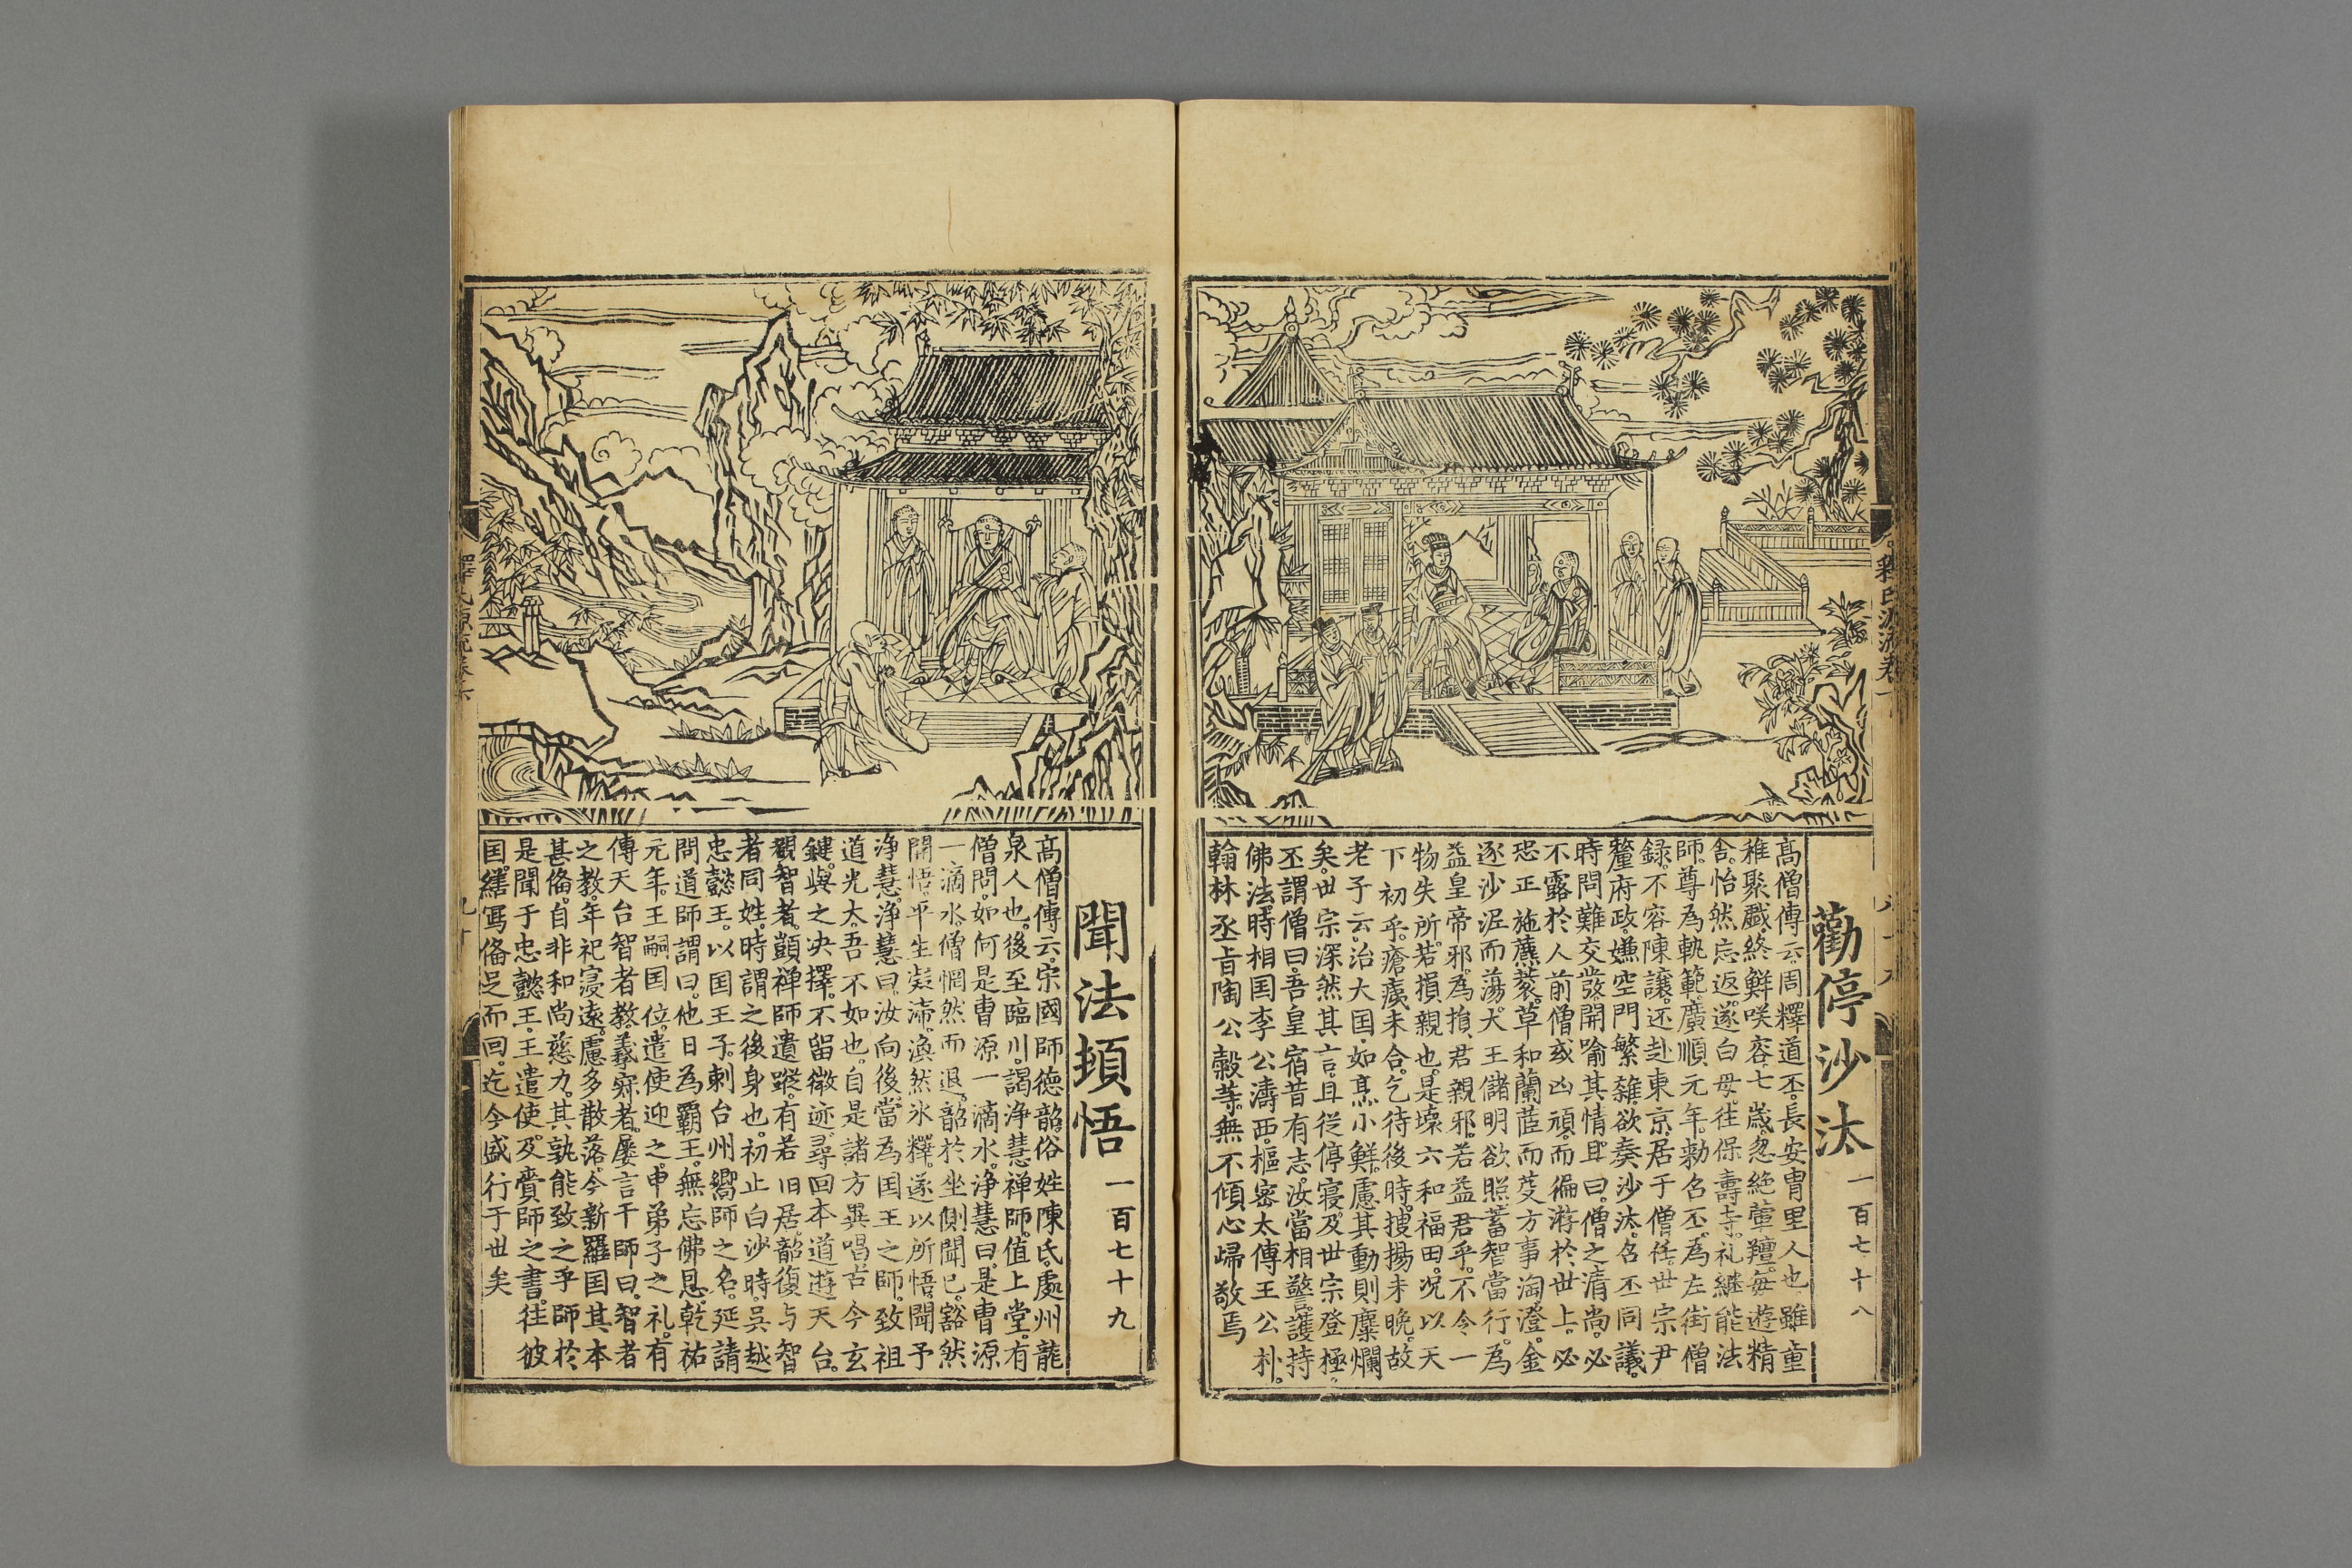 勸停沙汰 一百七十八
高僧傳云。周釋道丕。長安胄里人也雖童
稚聚戲。終鮮咲容。七歲忽絶葷羶。每遊精
舍。怡然忘返。遂白母。往保壽寺。礼継能法
師。尊為軌範。廣順元年。勅名丕。為左街僧
録。不容陳讓。还赴東京。居于僧任。世宗尹
釐府政。嫌空門繁雜。欲奏沙汰。名丕同議。
時問難交發。開喻其情。且曰。僧之清尚。必
不露於人前。僧或凶頑。而徧游於世上。必
恐正施薦蓘。草和蘭茝而芟。方事淘澄。金
逐沙泥而蕩。大王儲明欲照。蓄智當行。為
益皇帝邪。為損君親邪。若益君乎。不令一
物失所。若損親也。是壊六和福田。况以天
下初乎。瘡痍未合。乞待後時。摟揚未晚。故
老子云。治大国。如烹小鮮。慮其動則麋爛
矣。世宗深然其言。且從停寝。及世宗登極。
丕謂僧曰。吾皇宿昔有志。汝當相警。護持
佛法。時相国李公濤。西樞密太傅王公朴。
翰林丞旨陶公穀等。無不傾心歸敬焉
釋氏源流卷
聞法頓悟 一百七十九
高僧傳云。宋國師德韶。俗姓陳氏。處州龍
泉人也。後至臨川。謁浄慧禅師。值上堂。有
僧問。如何是曹源一滴水。浄慧曰。是曹源
一滴水。僧惘然而退。韶於坐側聞已。豁然
開悟。平生疑滞。渙然氷釋。遂以所悟。聞予
浄慧。浄慧曰。汝向後當為国王之師。致祖
道光大。吾不如也。自是諸方異唱。古今玄
鍵。與之决擇。不留微迹。尋回本道。遊天台。
覩智者。顗禅師遺蹤。有若旧居。韶復与智
者同姓。時謂之後身也。初止白沙時。吳越
忠懿王。以国王子。刺台州。嚮師之名。延請
問道。師謂曰。他日為霸王。無忘佛恩。乾祐
元年。王嗣国位。遣使迎之。申弟子之礼。有
傳天台智者教義寂者。屢言干師曰。智者
之教。年祀寖遠。慮多散落。今新羅国其本
甚俻。自非和尚慈力。其孰能致之乎。師於
是聞于忠懿王。王遣使。及賫師之書。往彼
国。繕寫俻足而回。迄今盛行于世矣
九十